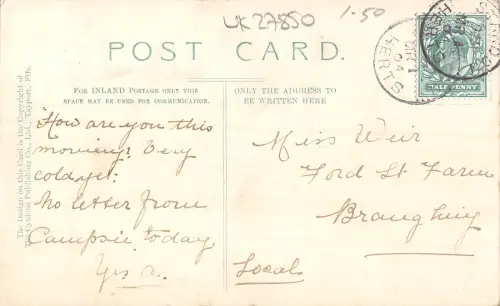 UK27850
1-50
POST CARD.
FOR INLAND POSTAGE ONLY THIS
SPACE MAY BE USED FOR COMMUNICATION.
ONLY THE ADDRESS TO
BE WRITTEN HERE
HERTS
HALFPENNY
The Design on this Card is the Copyright of
Publishing Co., Ltd., Tayport, Fife.
How are you this
morning? Very
cold yet.
No letter from
Campsie today.
Yrs a.
Miss Weir
Ford St Farm
Braughing
Local